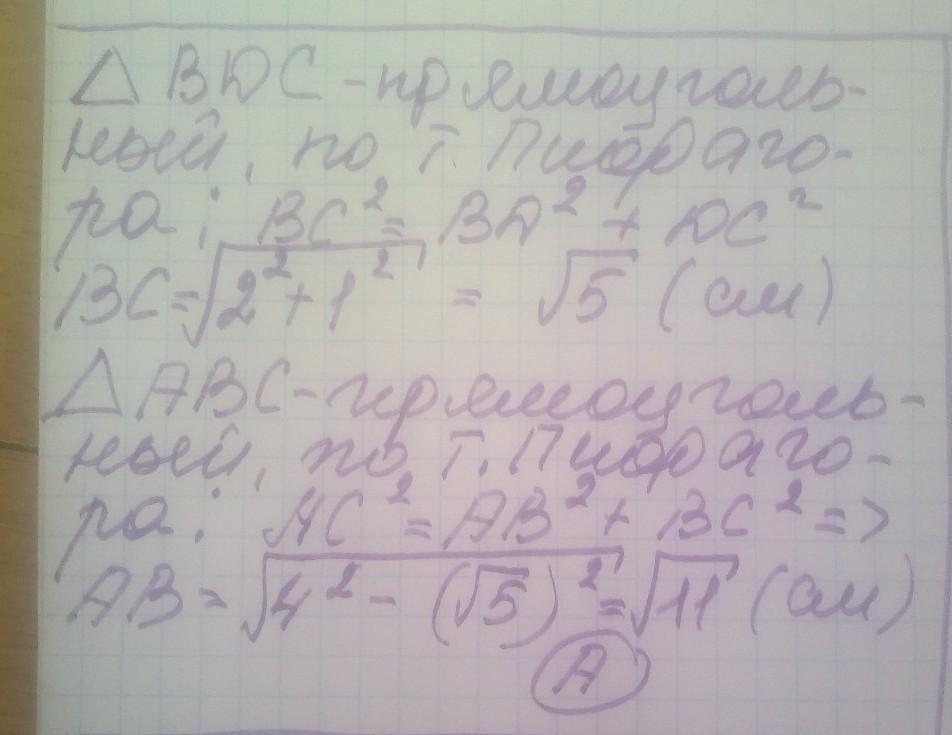 △ BDC - прямоуголь-
ный, по т. Пифаго-
ра: BC² = BD² + DC²
BC = √(2² + 1²) = √5 (см)
△ ABC - прямоуголь-
ный, по т. Пифаго-
ра: AC² = AB² + BC² =>
AB = √(4² - (√5)²) = √11 (см)
A